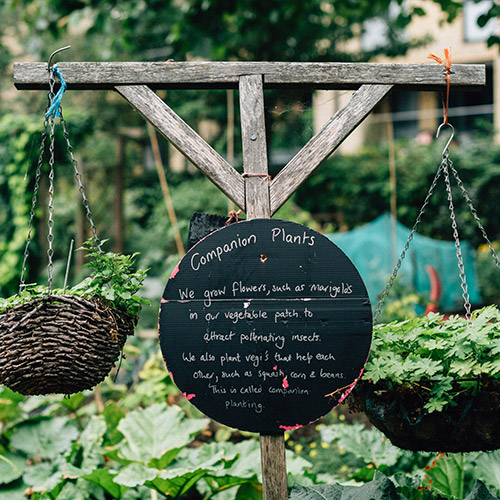 Companion Plants
We grow flowers, such as marigolds
in our vegetable patch to
attract pollenating insects.
We also plant vegi's that help each
other, such as squash, corn & beans.
This is called companion
planting.